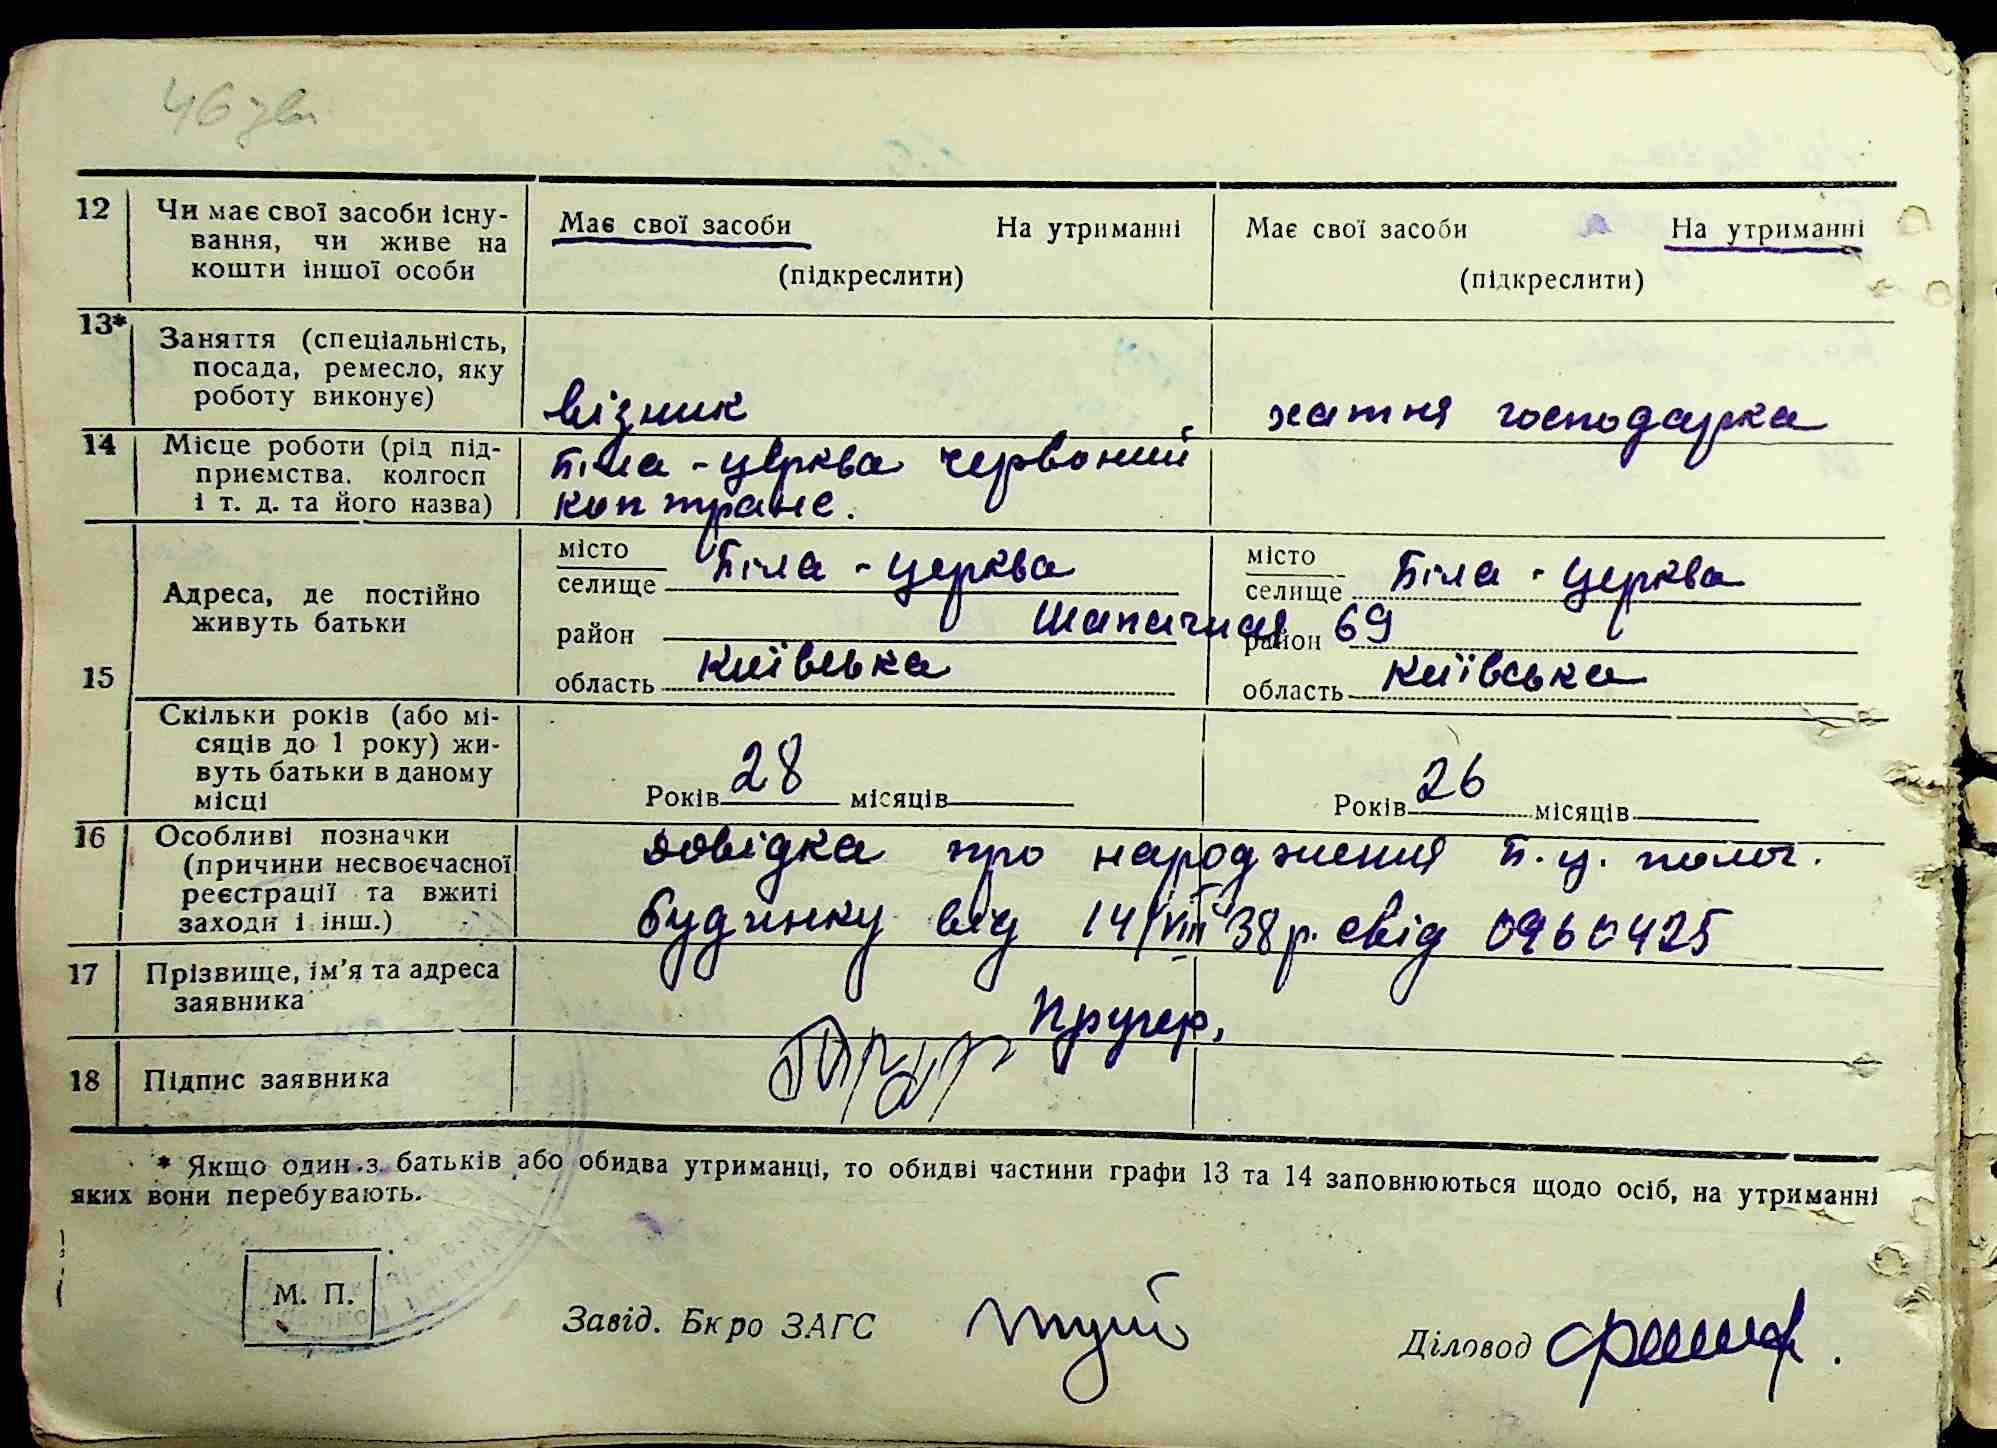 46 зв
12 Чи має свої засоби існу- Має свої засоби На утриманні Має свої засоби На утриманні
вання, чи живе на
кошти іншої особи (підкреслити) (підкреслити)
13* Заняття (спеціальність,
посада, ремесло, яку
роботу виконує) візник хатня господарка
14 Місце роботи (рід під- Біла-церква червоний
приємства, колгосп
і т. д. та його назва) коп транс.
15 Адреса, де постійно живуть батьки
місто
селище Біла-церква
район
область Київська
місто
селище Біла-церква
район 69
область Київська
Скільки років (або мі-
сяців до 1 року) жи-
вуть батьки в даному
місці Років 28 місяців Років 26 місяців
16 Особливі позначки довідка про народження Б.ц. полог.
(причини несвоєчасної
реєстрації та вжиті
заходи і інш.) будинку від 14/VIII 38р. свід 0960425
17 Прізвище, ім'я та адреса
заявника
18 Підпис заявника
* Якщо один з батьків або обидва утриманці, то обидві частини графи 13 та 14 заповнюються щодо осіб, на утриманні
яких вони перебувають.
М. П.
Завід. Бкро ЗАГС
Діловод